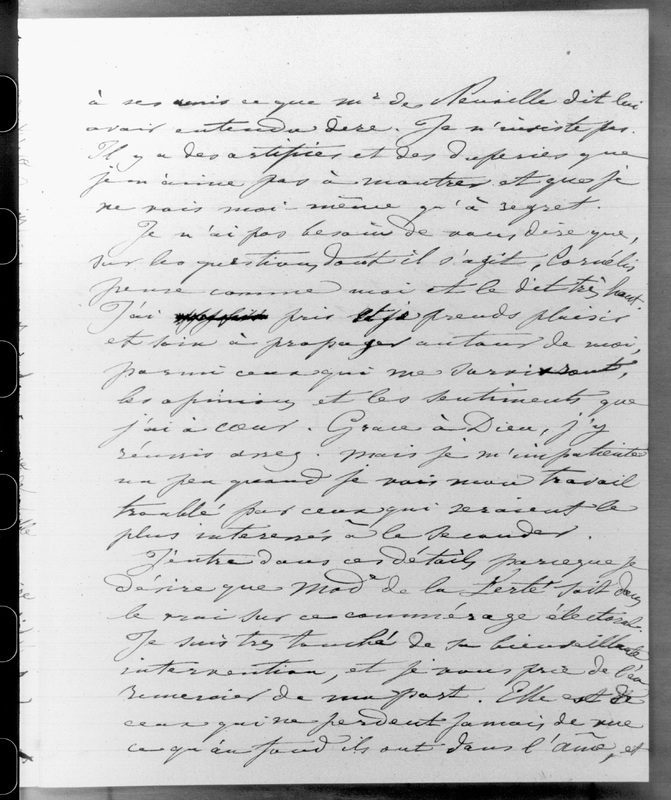 à ses amis ce que mr de Neuville dit lui
avoir entendu dire. Je n'insiste pas.
Il y a des artifices et des duperies que
je n'aime pas à montrer et que je
ne vois moi même qu'à regret.
Je n'ai pas besoin de vous dire que,
sur les questions dont il s'agit, Cornélis
pense comme moi et le dit très haut.
J'ai pris et je prends plaisir
et soin à propager autour de moi,
parmi ceux qui me survivront,
les opinions et les sentiments que
j'ai à cœur. Grace à Dieu, j'y
réussis assez. Mais je m'impatiente
un peu quand je vois mon travail
troublé par ceux qui seraient le
plus interessés à le seconder.
J'entre dans ces détails parceque je
désire que Made de la Ferté soit dans
le vrai sur ce commérage électoral.
Je suis très touché de sa bienveillante
intervention, et je vous prie de l'en
remercier de ma part. Elle est de
ceux qui ne perdent jamais de vue
ce qu'au fond ils ont dans l'âme, et